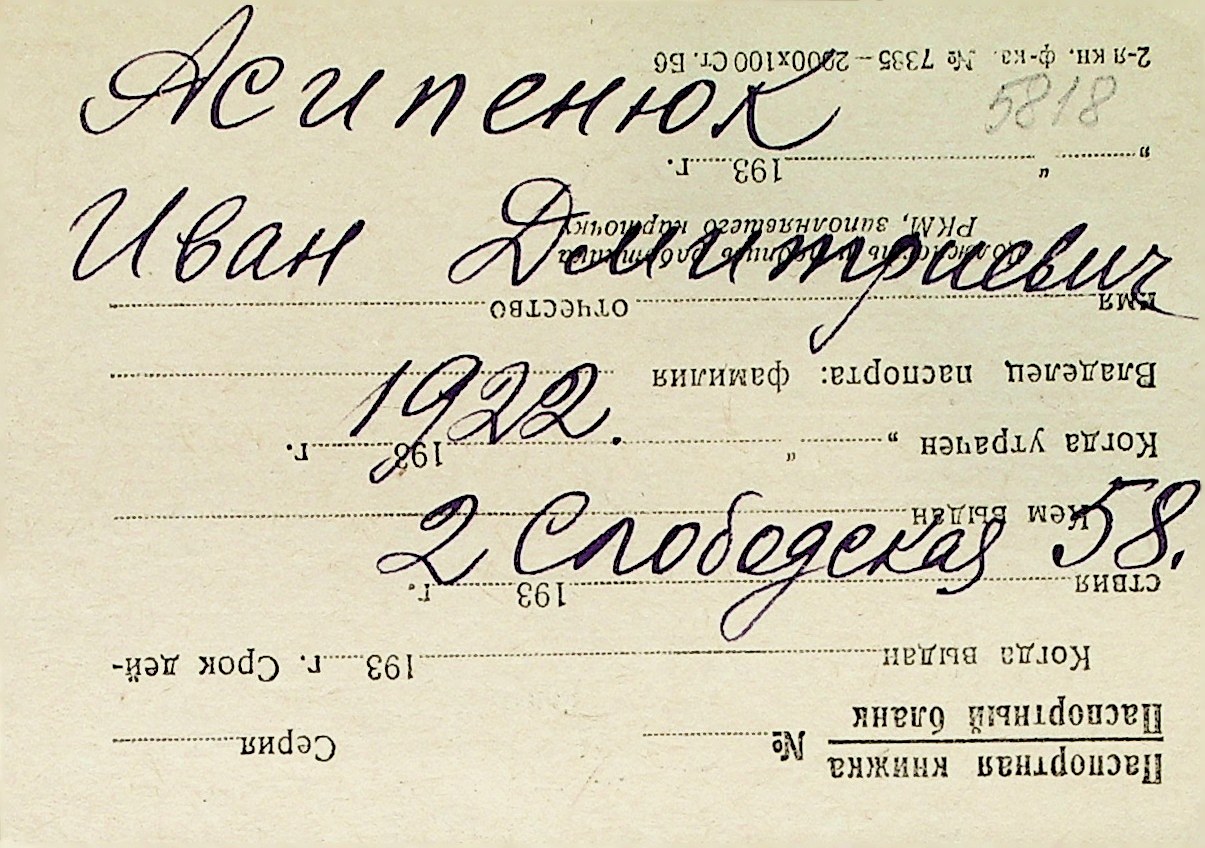 Асипенюк
Иван Дмитриевич
1922.
2 Слободская 58.
5818
Паспортная книжка
Паспортный бланк № Серия
Когда выдан 193 г. Срок дей-
ствия 193 г.
Кем выдан
Когда утрачен „ “ 193 г.
Владелец паспорта: фамилия
имя отчество
Должность и подпись работника
РКМ, заполнявшего карточку
„ “ 193 г.
2-я кн. ф-ка. № 7335—2000х100 Ст. Б6